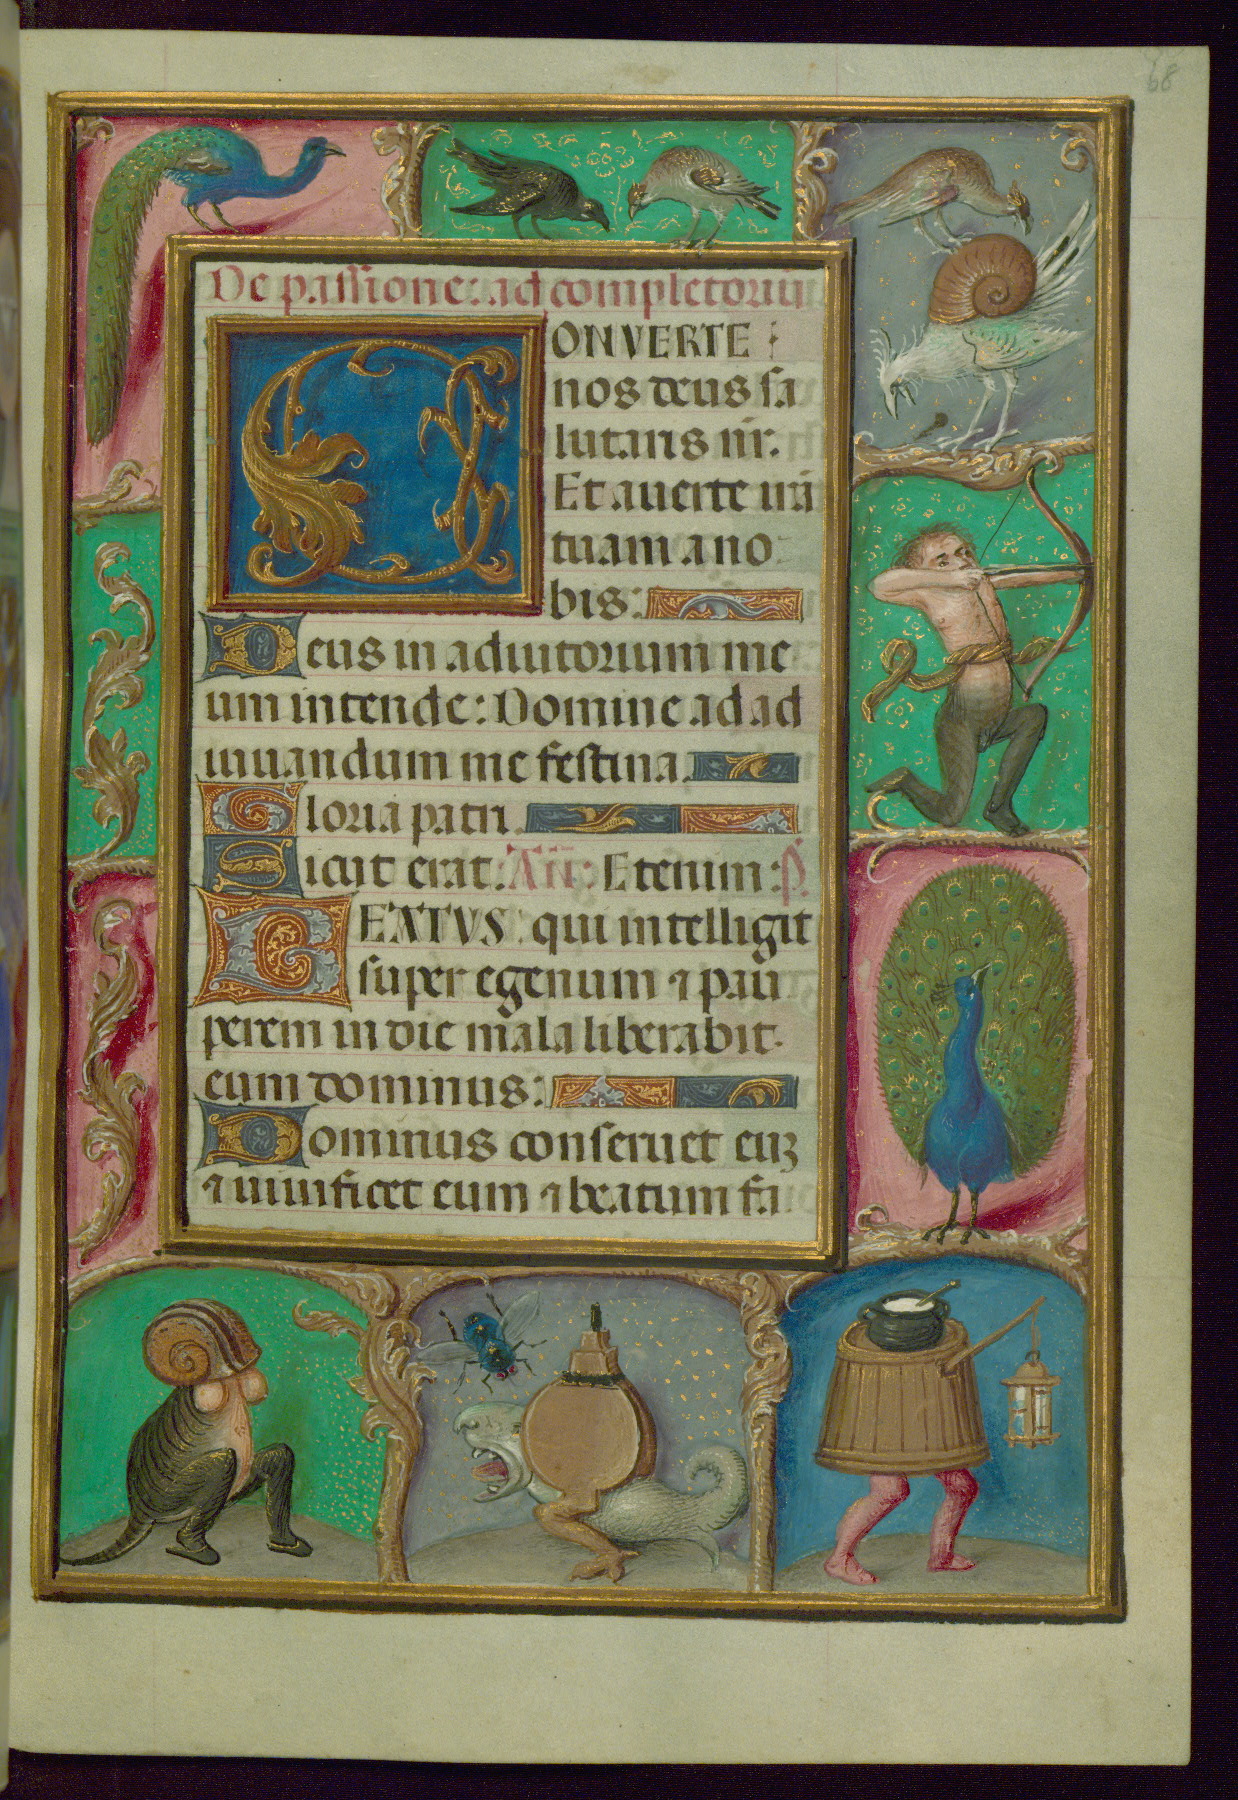 68
De passione: ad completoriū
CONVERTE
nos deus sa
lutaris nr̄.
Et auerte irā
tuam a no
bis:
Deus in adiutorium me
um intende: Domine ad ad
iuuandum me festina.
Gloria patri.
Sicut erat: Añ: Etenim: P̄.
BEATVS qui intelligit
super egenum ⁊ pau
perem in die mala liberabit
eum dominus:
Dominus conseruet euʒ
⁊ uiuificet eum ⁊ beatum fa